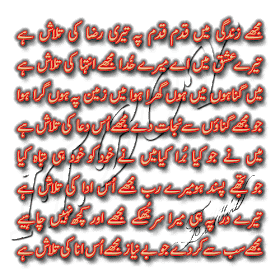 مجھے زندگی میں قدم قدم پہ تیری رضا کی تلاش ہے
تیرے عشق میں اے میرے خدا مجھے انتہا کی تلاش ہے
میں گناہوں میں ہوں گھرا ہوا میں زمین پہ ہوں گرا ہوا
جو مجھے گناہوں سے نجات دے مجھے اُس دعا کی تلاش ہے
میں نے جو کیا بُرا کیا میں نے خود کو خود ہی تباہ کیا
جو تجھے پسند ہو میرے رب مجھے اُس ادا کی تلاش ہے
تیرے در پر ہی میرا سر جھکے مجھے اور کچھ نہیں چاہیے
مجھے سب سے کر دے جو بے نیاز مجھے اُس انا کی تلاش ہے